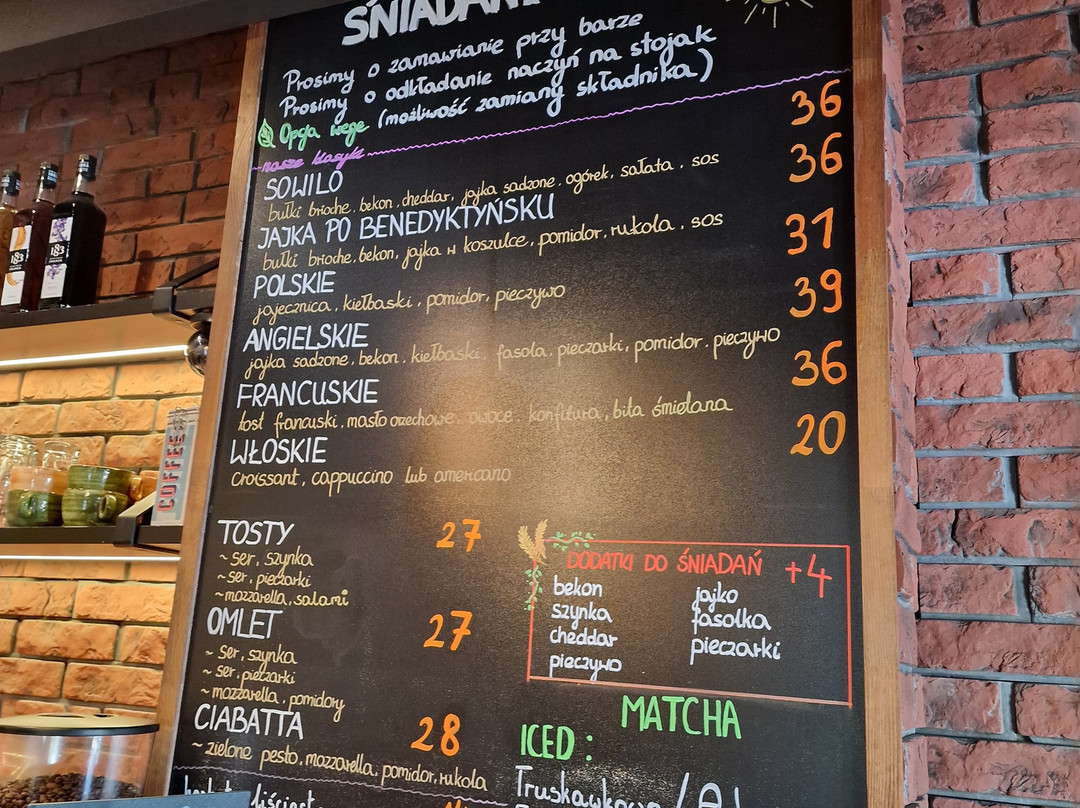 ŚNIADAN
Prosimy o zamawianie przy barze
Prosimy o odkładanie naczyń na stojak
Opcja wege (możliwość zamiany składnika)
nasze klasyki
SOWILO 36
bułki brioche, bekon, cheddar, jajka sadzone, ogórek, sałata, sos
JAJKA PO BENEDYKTYŃSKU 36
bułki brioche, bekon, jajka w koszulce, pomidor, rukola, sos
POLSKIE 37
jajecznica, kiełbaski, pomidor, pieczywo
ANGIELSKIE 39
jajka sadzone, bekon, kiełbaski, fasola, pieczarki, pomidor, pieczywo
FRANCUSKIE 36
tost francuski, masło orzechowe, owoce, konfitura, bita śmietana
WŁOSKIE 20
croissant, cappuccino lub americano
TOSTY 27
~ ser, szynka
~ ser, pieczarki
~ mozzarella, salami
OMLET 27
~ ser, szynka
~ ser, pieczarki
~ mozzarella, pomidory
CIABATTA 28
~ zielone pesto, mozzarella, pomidor, rukola
DODATKI DO ŚNIADAŃ +4
bekon jajko
szynka fasolka
cheddar pieczarki
pieczywo
MATCHA
ICED:
1883
1883
COFFEE